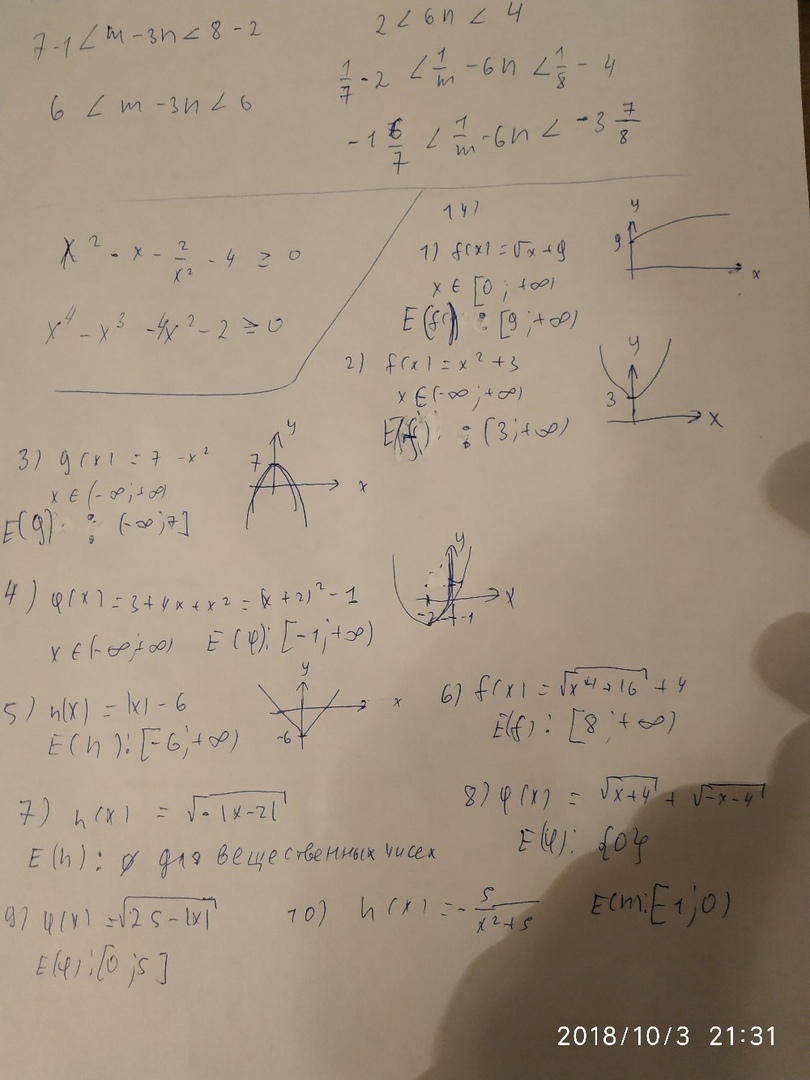 7-1 < m - 3n < 8 - 2
6 < m - 3n < 6
2 < 6n < 4
1/7 - 2 < 1/m - 6n < 1/8 - 4
-1 6/7 < 1/m - 6n < -3 7/8
x² - x - 2/x² - 4 ≥ 0
x⁴ - x³ - 4x² - 2 ≥ 0
14)
1) f(x) = √x + 9
x ∈ [0; +∞)
E(f) : [9; +∞)
y
9
x
2) f(x) = x² + 3
x ∈ (-∞; +∞)
E(f) : (3; +∞)
y
3
x
3) g(x) = 7 - x²
x ∈ (-∞; +∞)
E(g) : (-∞; 7]
y
7
x
4) φ(x) = 3 + 4x + x² = (x + 2)² - 1
x ∈ (-∞; +∞) E(φ): [-1; +∞)
y
x
-2 -1
5) h(x) = |x| - 6
E(h): [-6; +∞)
y
x
-6
6) f(x) = √x⁴ + 16 + 4
E(f): [8; +∞)
7) h(x) = √-|x-2|
E(h): ∅ для вещественных чисел
8) φ(x) = √x+4 + √-x-4
E(φ): {0}
9) φ(x) = √25 - |x|
E(φ): [0; 5]
10) h(x) = - 5/x²+5 E(h): [-1; 0)
2018/10/3 21:31